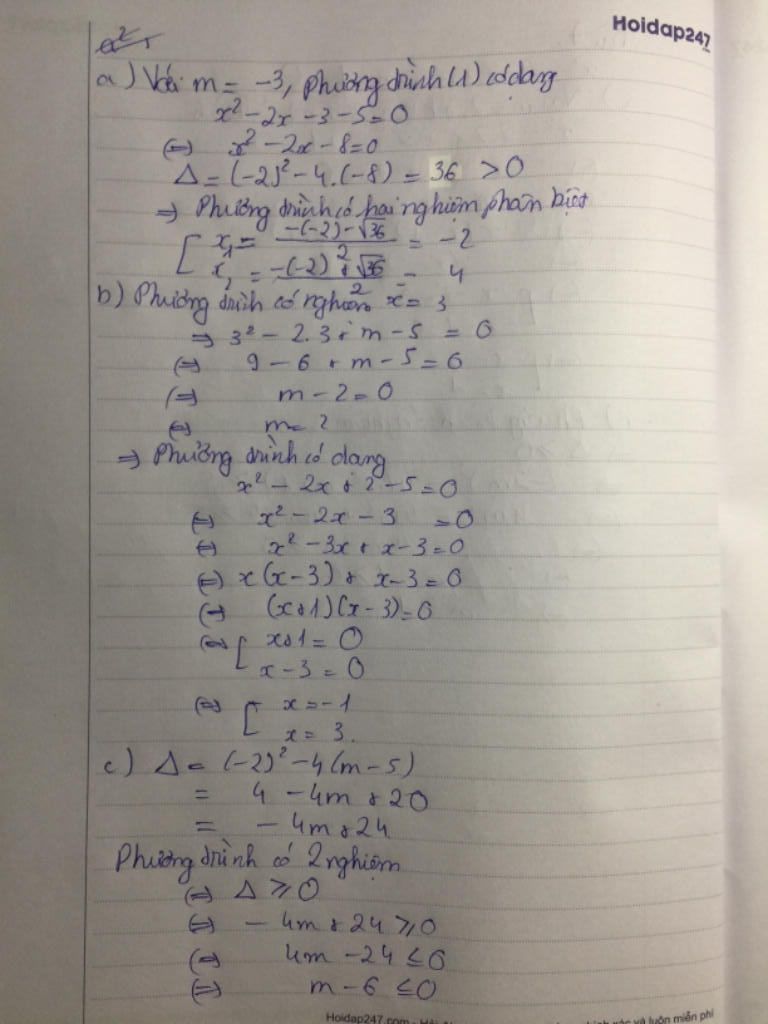 Hoidap247
a) Với m = -3, phương trình (1) có dạng
x² - 2x - 3 - 5 = 0
(=) x² - 2x - 8 = 0
Δ = (-2)² - 4.(-8) = 36 > 0
=> Phương trình có hai nghiệm phân biệt
[ x₁ = (-(-2) - √36)/2 = -2
x₂ = (-(-2) + √36)/2 = 4
b) Phương trình có nghiệm x = 3
=> 3² - 2.3 + m - 5 = 0
(=) 9 - 6 + m - 5 = 0
(=) m - 2 = 0
(=) m = 2
=> Phương trình có dạng
x² - 2x + 2 - 5 = 0
(=) x² - 2x - 3 = 0
(=) x² - 3x + x - 3 = 0
(=) x(x - 3) + x - 3 = 0
(=) (x + 1)(x - 3) = 0
(=) [ x + 1 = 0
x - 3 = 0
(=) [ x = -1
x = 3.
c) Δ = (-2)² - 4(m - 5)
= 4 - 4m + 20
= - 4m + 24
Phương trình có 2 nghiệm
(=) Δ ⩾ 0
(=) - 4m + 24 ⩾ 0
(=) 4m - 24 ≤ 0
(=) m - 6 ≤ 0
Hoidap247.com